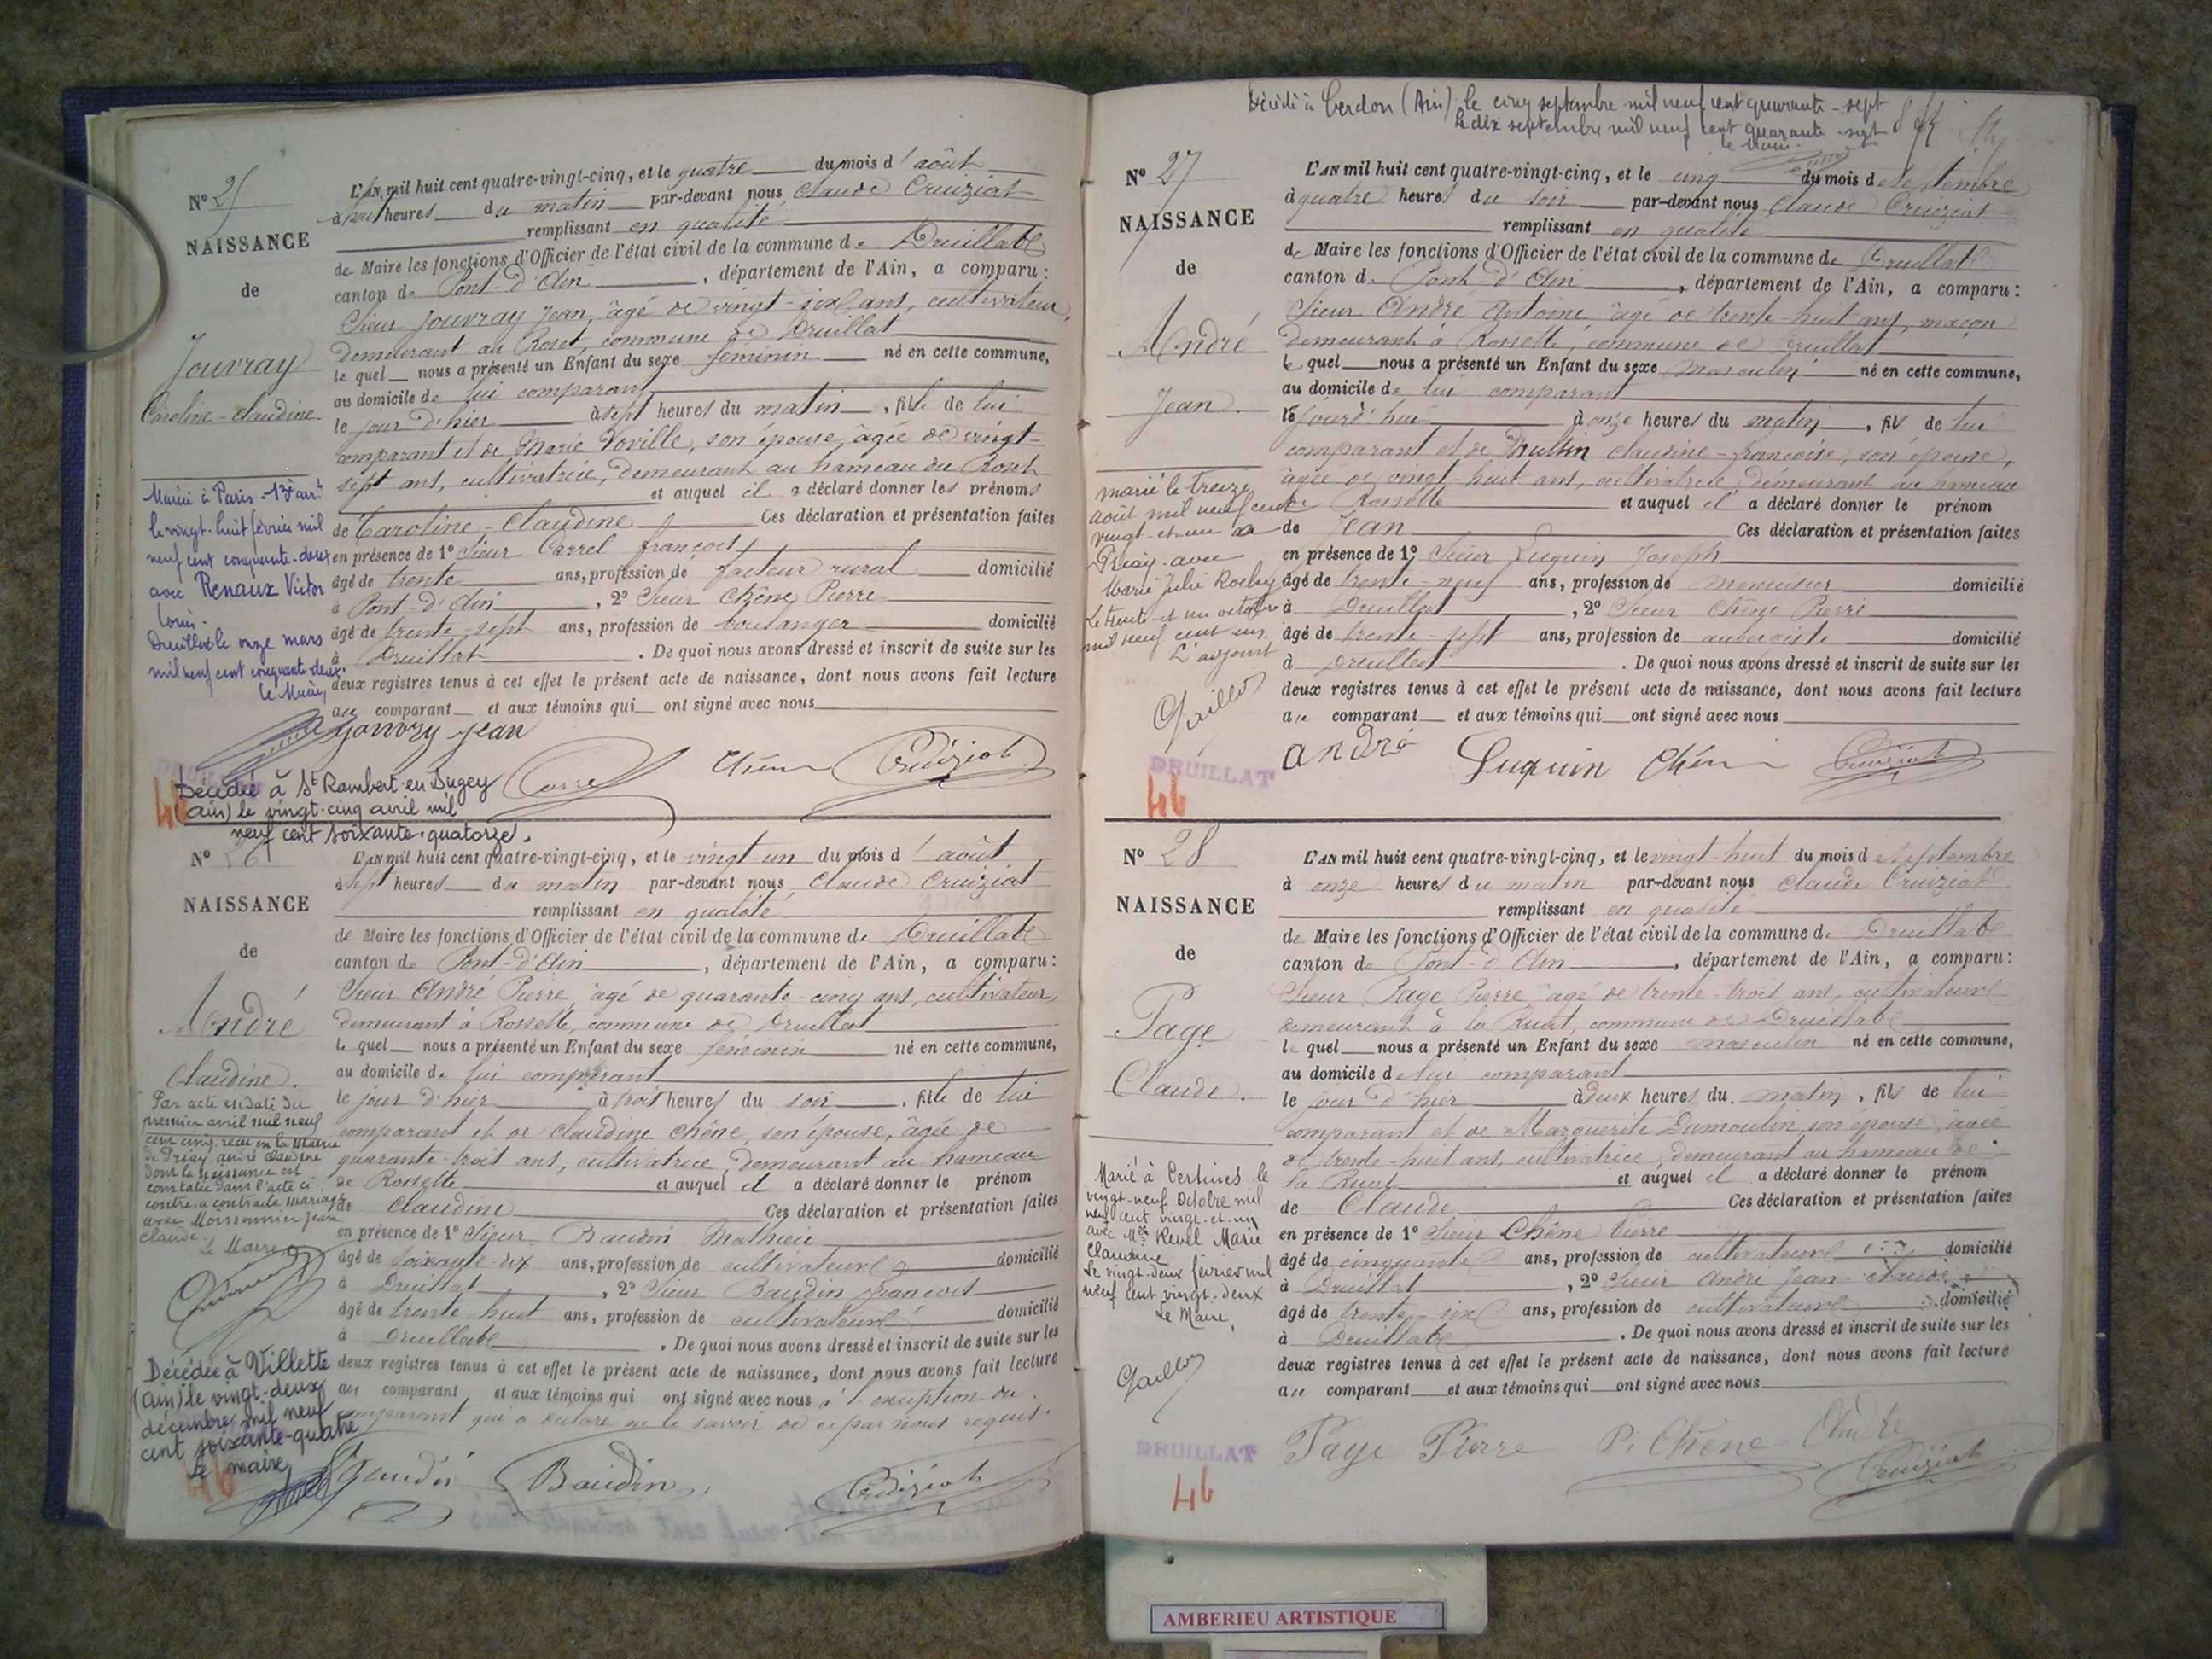 N° 25
NAISSANCE
de
Jouvray
Caroline-Claudine
Mariée à Paris 13e arrt
le vingt-huit février mil
neuf cent cinquante-deux
avec Renaux Victor
Louis.
Druillat le onze mars
mil neuf cent cinquante-deux.
le Maire,
L'AN mil huit cent quatre-vingt-cinq, et le quatre du mois d'août
à huit heures du matin par-devant nous Claude Cruiziat
remplissant en qualité
de Maire les fonctions d'Officier de l'état civil de la commune de Druillat
canton de Pont-d'Ain, département de l'Ain, a comparu:
Sieur Jouvray Jean, âgé de vingt-six ans, cultivateur,
demeurant au Roset, commune de Druillat
lequel nous a présenté un Enfant du sexe féminin né en cette commune,
au domicile de lui comparant
le jour d'hier à sept heures du matin, fille de lui
comparant et de Marie Voville, son épouse, âgée de vingt-
sept ans, cultivatrice, demeurant au hameau du Roset
et auquel il a déclaré donner les prénoms
de Caroline-Claudine Ces déclaration et présentation faites
en présence de 1° Sieur Carrel françois
âgé de trente ans, profession de facteur rural domicilié
à Pont-d'Ain, 2° Sieur Chêne Pierre
âgé de trente-sept ans, profession de boulanger domicilié
à Druillat. De quoi nous avons dressé et inscrit de suite sur les
deux registres tenus à cet effet le présent acte de naissance, dont nous avons fait lecture
au comparant et aux témoins qui ont signé avec nous
Jouvray Jean
Carrel Chêne Cruiziat
DRUILLAT
46
Décédée à St Rambert-en-Bugey
(Ain) le vingt-cinq avril mil
neuf cent soixante-quatorze.
N° 26
NAISSANCE
de
André
Claudine.
Par acte en date du
premier avril mil neuf
cent cinq, reçu en la Mairie
de Priay, andré Claudine
dont la naissance est
constatée dans l'acte ci-
contre, a contracté mariage
avec Moissonnier Jean
Claude.
Le Maire
Décédée à Villette
(Ain) le vingt-deux
décembre mil neuf
cent soixante-quatre
Le maire,
46
L'AN mil huit cent quatre-vingt-cinq, et le vingt-un du mois d'août
à sept heures du matin par-devant nous Claude Cruiziat
remplissant en qualité
de Maire les fonctions d'Officier de l'état civil de la commune de Druillat
canton de Pont-d'Ain, département de l'Ain, a comparu:
Sieur André Pierre, âgé de quarante-cinq ans, cultivateur,
demeurant à Rossette, commune de Druillat
lequel nous a présenté un Enfant du sexe féminin né en cette commune,
au domicile de lui comparant
le jour d'hier à trois heures du soir, fille de lui
comparant et de Claudine Chêne, son épouse, âgée de
quarante-trois ans, cultivatrice, demeurant au hameau
de Rossette et auquel il a déclaré donner le prénom
de Claudine Ces déclaration et présentation faites
en présence de 1° Sieur Baudin Mathieu
âgé de soixante-dix ans, profession de cultivateur domicilié
à Druillat, 2° Sieur Baudin françois
âgé de trente-huit ans, profession de cultivateur domicilié
à Druillat. De quoi nous avons dressé et inscrit de suite sur les
deux registres tenus à cet effet le présent acte de naissance, dont nous avons fait lecture
au comparant et aux témoins qui ont signé avec nous à l'exception du
comparant qui a déclaré ne le savoir de ce par nous requis.
Baudin Baudin Cruiziat
Décédé à Cerdon (Ain) le cinq septembre mil neuf cent quarante-sept
le dix septembre mil neuf cent quarante-sept
le Maire.
N° 27
NAISSANCE
de
André
Jean.
marié le treize
août mil neuf cent
vingt-et-un à
Priay avec
Marie Julie Rochy
Le trente-et-un octobre
mil neuf cent
L'adjoint
DRUILLAT
46
L'AN mil huit cent quatre-vingt-cinq, et le cinq du mois de Septembre
à quatre heures du soir par-devant nous Claude Cruiziat
remplissant en qualité
de Maire les fonctions d'Officier de l'état civil de la commune de Druillat
canton de Pont-d'Ain, département de l'Ain, a comparu:
Sieur André Antoine âgé de trente-huit ans, maçon
demeurant à Rossette, commune de Druillat
lequel nous a présenté un Enfant du sexe masculin né en cette commune,
au domicile de lui comparant
le jourd'hui à onze heures du matin, fils de lui
comparant et de Claudine-françoise, son épouse,
âgée de vingt-huit ans, cultivatrice, demeurant au hameau
de Rossette et auquel il a déclaré donner le prénom
de Jean Ces déclaration et présentation faites
en présence de 1° Sieur Luquin Joseph
âgé de trente-neuf ans, profession de menuisier domicilié
à Druillat, 2° Sieur Chêne Pierre
âgé de trente-sept ans, profession de aubergiste domicilié
à Druillat. De quoi nous avons dressé et inscrit de suite sur les
deux registres tenus à cet effet le présent acte de naissance, dont nous avons fait lecture
au comparant et aux témoins qui ont signé avec nous
andré Luquin Chêne Cruiziat
N° 28
NAISSANCE
de
Page
Claude.
Marié à Certines le
vingt-neuf Octobre mil
neuf cent vingt-et-un
avec Mlle Revel Marie
Claudine
Le vingt-deux février mil
neuf cent vingt-deux
Le Maire,
DRUILLAT
46
L'AN mil huit cent quatre-vingt-cinq, et le vingt-huit du mois de Septembre
à onze heures du matin par-devant nous Claude Cruiziat
remplissant en qualité
de Maire les fonctions d'Officier de l'état civil de la commune de Druillat
canton de Pont-d'Ain, département de l'Ain, a comparu:
Sieur Page Pierre, âgé de trente-trois ans, cultivateur
demeurant à la Ruat, commune de Druillat
lequel nous a présenté un Enfant du sexe masculin né en cette commune,
au domicile de lui comparant
le jour d'hier à deux heures du matin, fils de lui
comparant et de Marguerite Dumoulin, son épouse, âgée
de trente-huit ans, cultivatrice, demeurant au hameau de
la Ruat et auquel il a déclaré donner le prénom
de Claude Ces déclaration et présentation faites
en présence de 1° Sieur Chêne Pierre
âgé de cinquante ans, profession de cultivateur domicilié
à Druillat, 2° Sieur André Jean-Claude
âgé de trente-six ans, profession de cultivateur domicilié
à Druillat. De quoi nous avons dressé et inscrit de suite sur les
deux registres tenus à cet effet le présent acte de naissance, dont nous avons fait lecture
au comparant et aux témoins qui ont signé avec nous
Page Pierre P. Chêne André
Cruiziat
AMBERIEU ARTISTIQUE